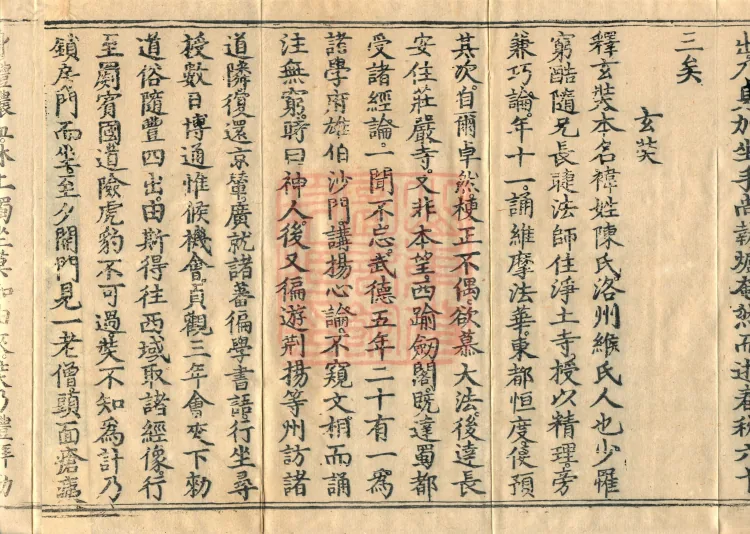 手尚執爐奄然而逝春秋六十
三矣
玄奘
釋玄奘本名褘姓陳氏洛州緱氏人也少罹
窮酷隨兄長睫法師住淨土寺授以精理旁
兼巧論年十一誦維摩法華東都恒度便預
其次自爾卓然梗正不偶欲慕大法後達長
安住莊嚴寺又非本望西踰劒閣既達蜀都
受諸經論一聞不忘武德五年二十有一為
諸學府雄伯沙門講揚心論不窺文相而誦
注無窮時曰神人後又徧遊荊揚等州訪諸
道隣復還京輦廣就諸蕃徧學書語行坐尋
授數日博通惟候機會貞觀三年會夾下勑
道俗隨豐四出由斯得往西域取諸經像行
至罽賓國道險虎豹不可過奘不知為計乃
鎖房門而坐至夕開門見一老僧頭面瘡
獨坐莫知由來奘乃禮拜